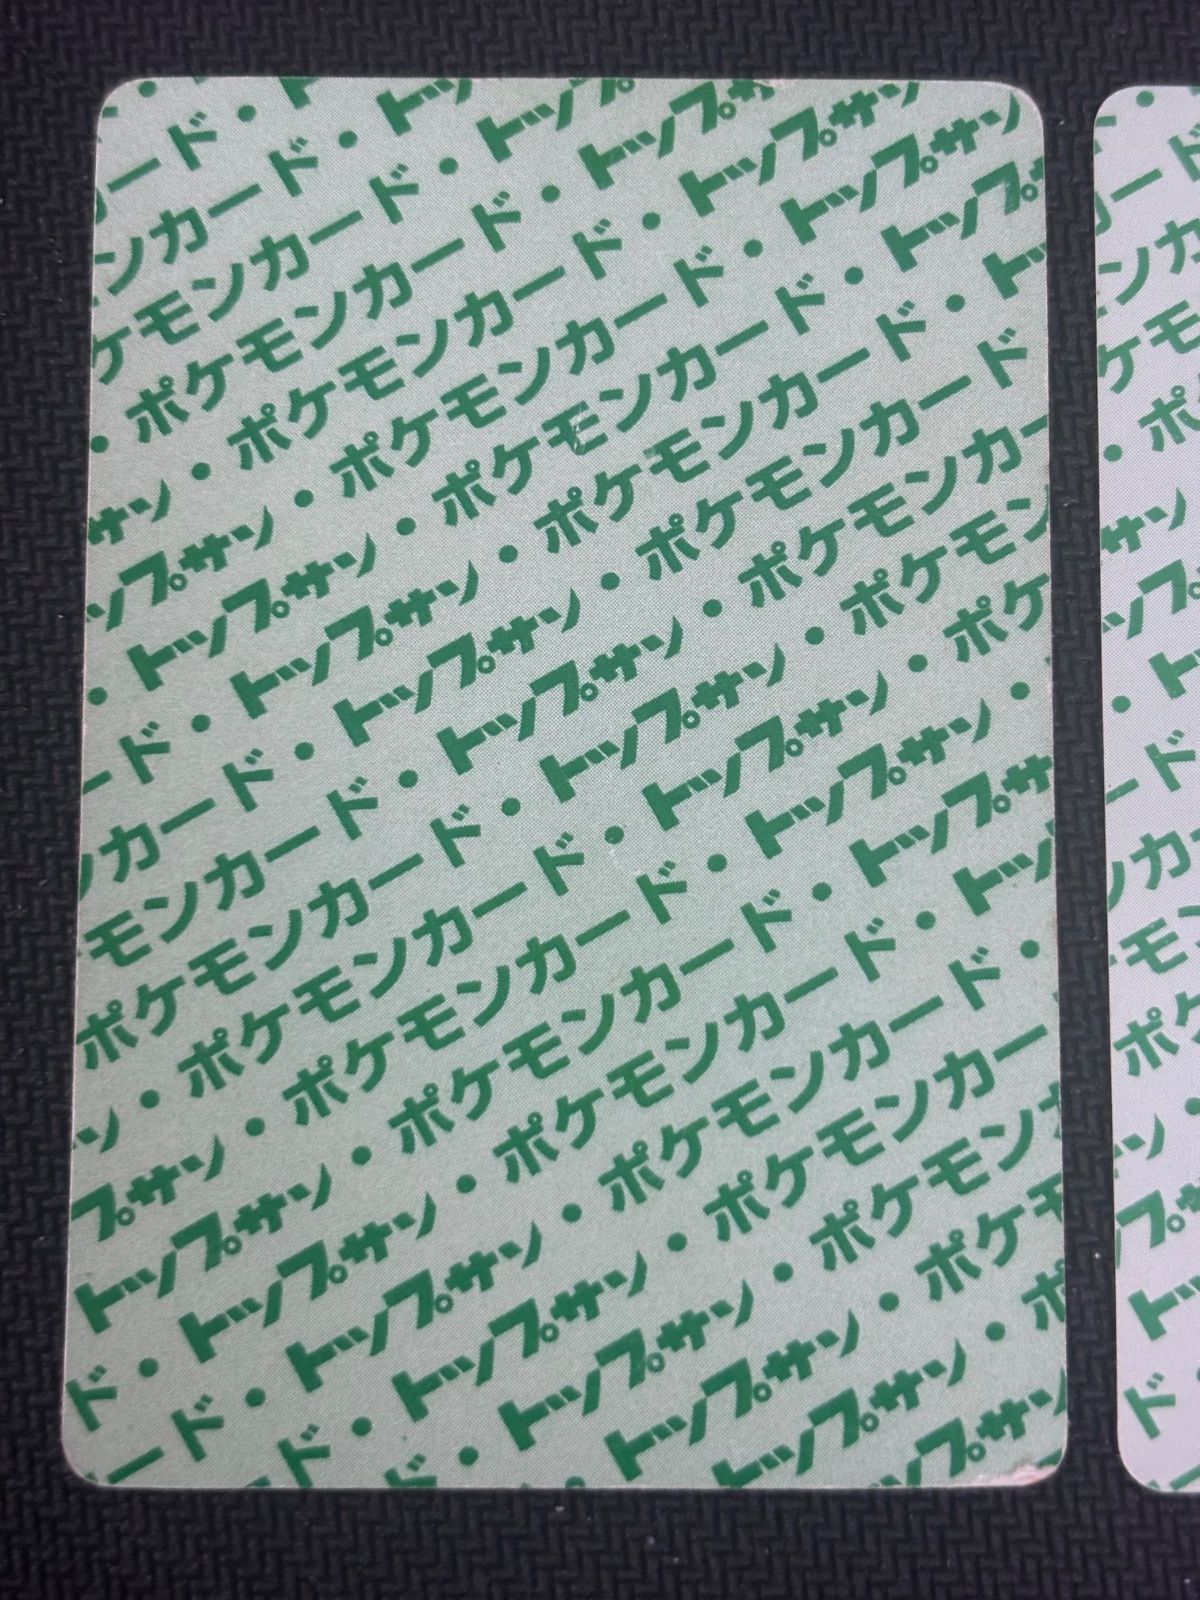 ード・トップ
ンカード・トップサン
ケモンカード・トップサン
・ポケモンカード・トップサン
サン・ポケモンカード・トップサン
ップサン・ポケモンカード・トップ
・トップサン・ポケモンカード・ト
ード・トップサン・ポケモンカード
カード・トップサン・ポケモンカー
モンカード・トップサン・ポケモン
ポケモンカード・トップサン・ポケ
ン・ポケモンカード・トップサン・
プサン・ポケモンカード・トップサ
トップサン・ポケモンカード・トッ
ド・トップサン・ポケモンカード・
ード・トップサン・ポケモンカー
ド・トップサン・ポケモン
ド・トップサン・ポケ
トップサン・ポ
トップサン